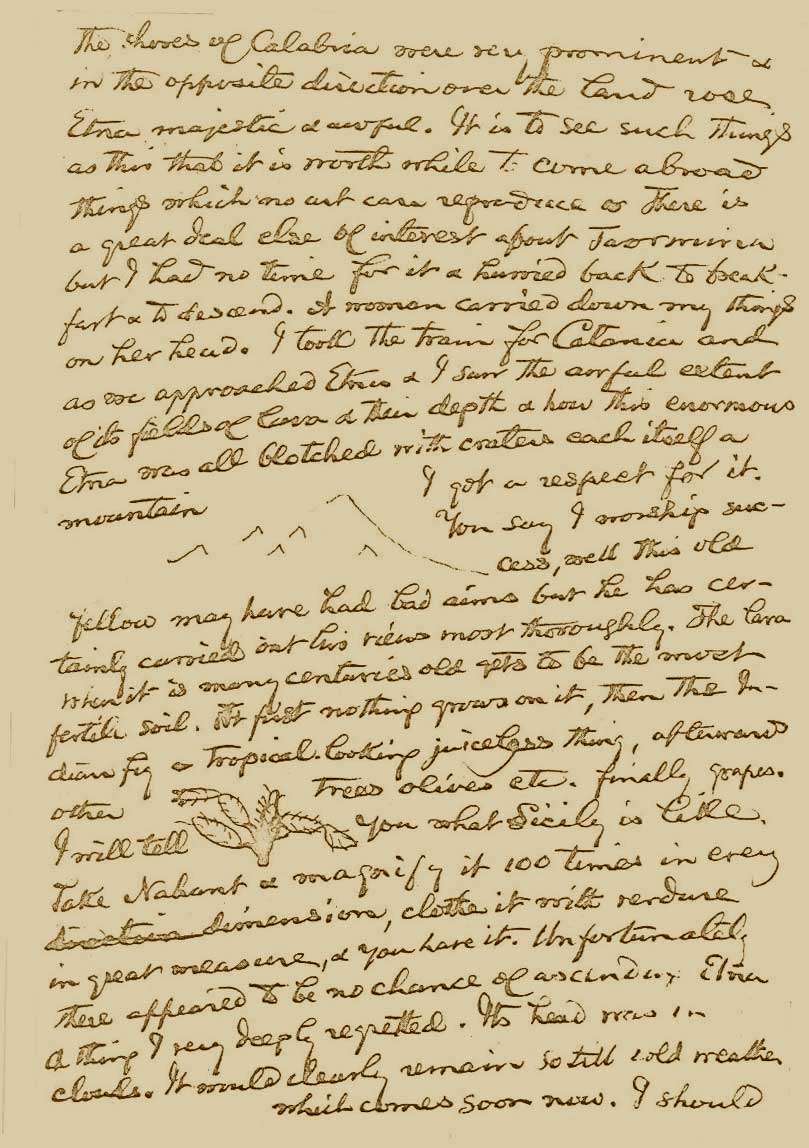 the shores of Calabria were very prominent &
in the opposite direction over the land rose
Etna majestic & awful. It is to see such things
as this that it is worth while to come abroad
things which no art can reproduce or There is
a great deal else of interest about Taormina
but I had no time for it & hurried back to break-
fast & to descend. A woman carried down my things
on her head. I took the train for Catania and
as we approached Etna & I saw the awful extent
of its fields of lava & their depth & how this enormous
Etna was all blotched with craters each itself a
mountain I got a respect for it.
You say I worship suc-
cess, well this old
fellow may have had bad aims but he has cer-
tainly carried out his views most thoroughly. The lava
when it is many centuries old gets to be the most
fertile soil. At first nothing grows on it, then the In-
dian fig a tropical-looking juiceless thing, afterward
other trees olives etc. finally grapes.
I will tell you what Sicily is like.
Take Nahant & magnify it 100 times in every
direction dimension, clothe it with verdure
in great measure, & you have it. Unfortunately
there appeared to be no chance of ascending Etna
a thing I very deeply regretted. Its head was in
clouds. It would clearly remain so till cold weather
which comes soon now. I should